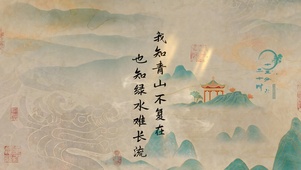 我知青山不复在
也知绿水难长流